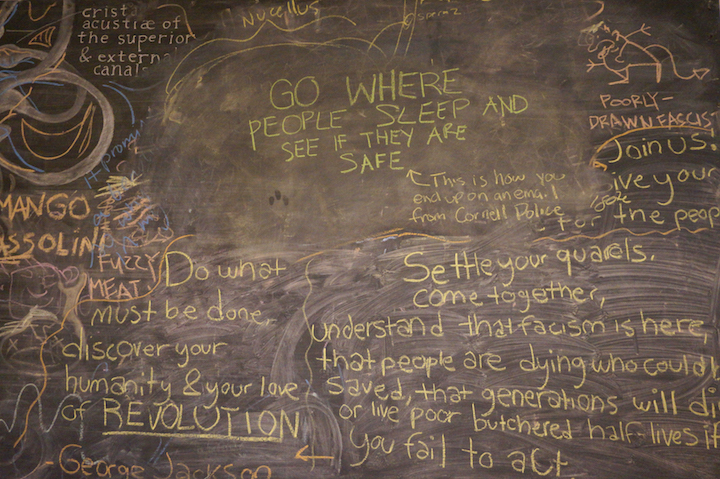 crist
acustiæ of
the superior
& external
canals
Nucellus
GO WHERE
PEOPLE SLEEP AND
SEE IF THEY ARE
SAFE
This is how you
end up on an email
from Cornell Police
POORLY-
DRAWN FASCIST
Join us.
ive your
for the peop
MANGO
ASSOLIN
FUZZY
MEAT
Do what
must be done,
discover your
humanity & your love
of REVOLUTION
- George Jackson
Settle your quarels,
come together,
understand that facism is here,
that people are dying who could
saved, that generations will di
or live poor butchered half-lives if
you fail to act